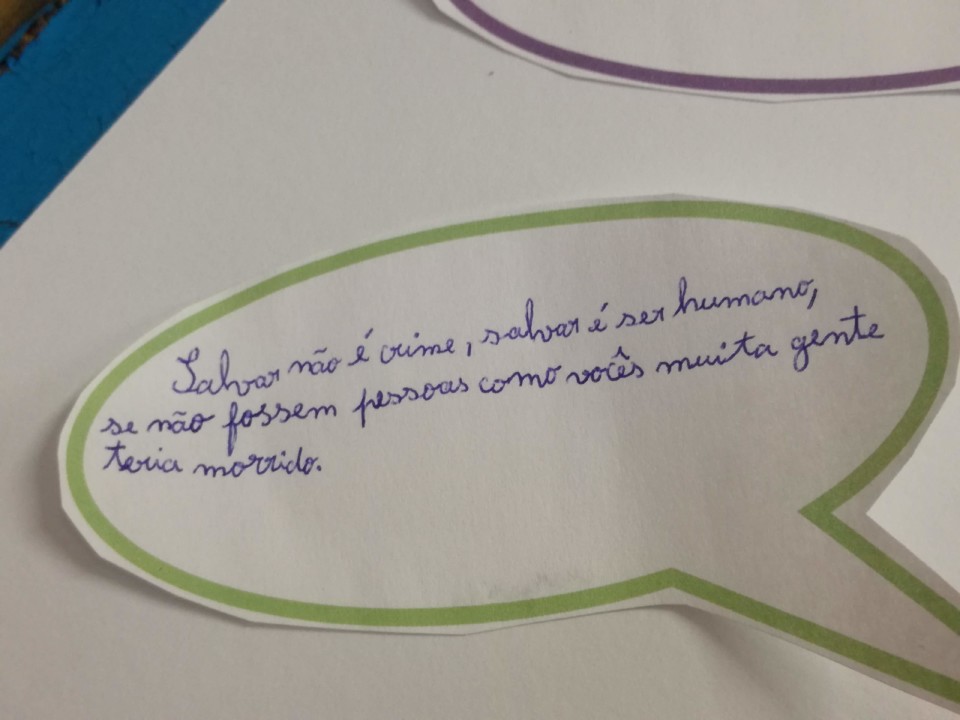 Salvar não é crime, salvar é ser humano,
se não fossem pessoas como vocês muita gente
teria morrido.